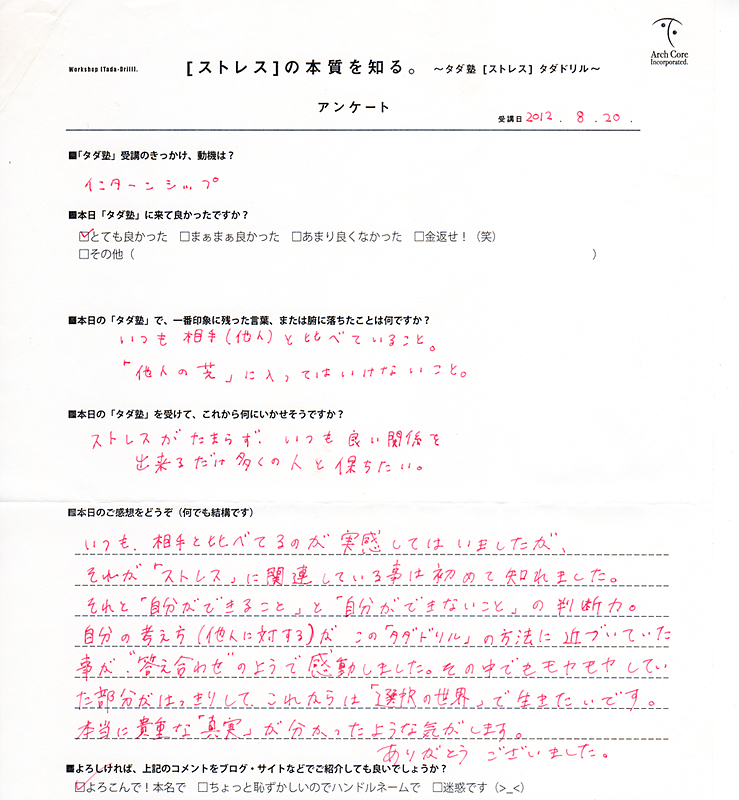 Workshop [Tada-Drill].
[ストレス]の本質を知る。 ～タダ塾 [ストレス] タダドリル～
Arch Core
Incorporated.
アンケート
受講日 2012 . 8 . 20 .
■「タダ塾」受講のきっかけ、動機は？
インターンシップ
■本日「タダ塾」に来て良かったですか？
☑とても良かった □まぁまぁ良かった □あまり良くなかった □金返せ！（笑）
□その他（ ）
■本日の「タダ塾」で、一番印象に残った言葉、または腑に落ちたことは何ですか？
いつも相手（他人）と比べていること。
「他人の芝」に入ってはいけないこと。
■本日の「タダ塾」を受けて、これから何にいかせそうですか？
ストレスがたまらず、いつも良い関係を
出来るだけ多くの人と保ちたい。
■本日のご感想をどうぞ（何でも結構です）
いつも、相手と比べてるのが実感してはいましたが、
それが「ストレス」に関連している事は初めて知れました。
それと「自分ができること」と「自分ができないこと」の判断力。
自分の考え方（他人に対する）が この「タダドリル」の方法に近づいていた
事が、“答え合わせ”のようで感動しました。その中でもモヤモヤしてい
た部分がはっきりして、これからは「選択の世界」で生きたいです。
本当に貴重な「真実」が分かったような気がします。
ありがとう ございました。
■よろしければ、上記のコメントをブログ・サイトなどでご紹介しても良いでしょうか？
☑よろこんで！本名で □ちょっと恥ずかしいのでハンドルネームで □迷惑です（>_<）